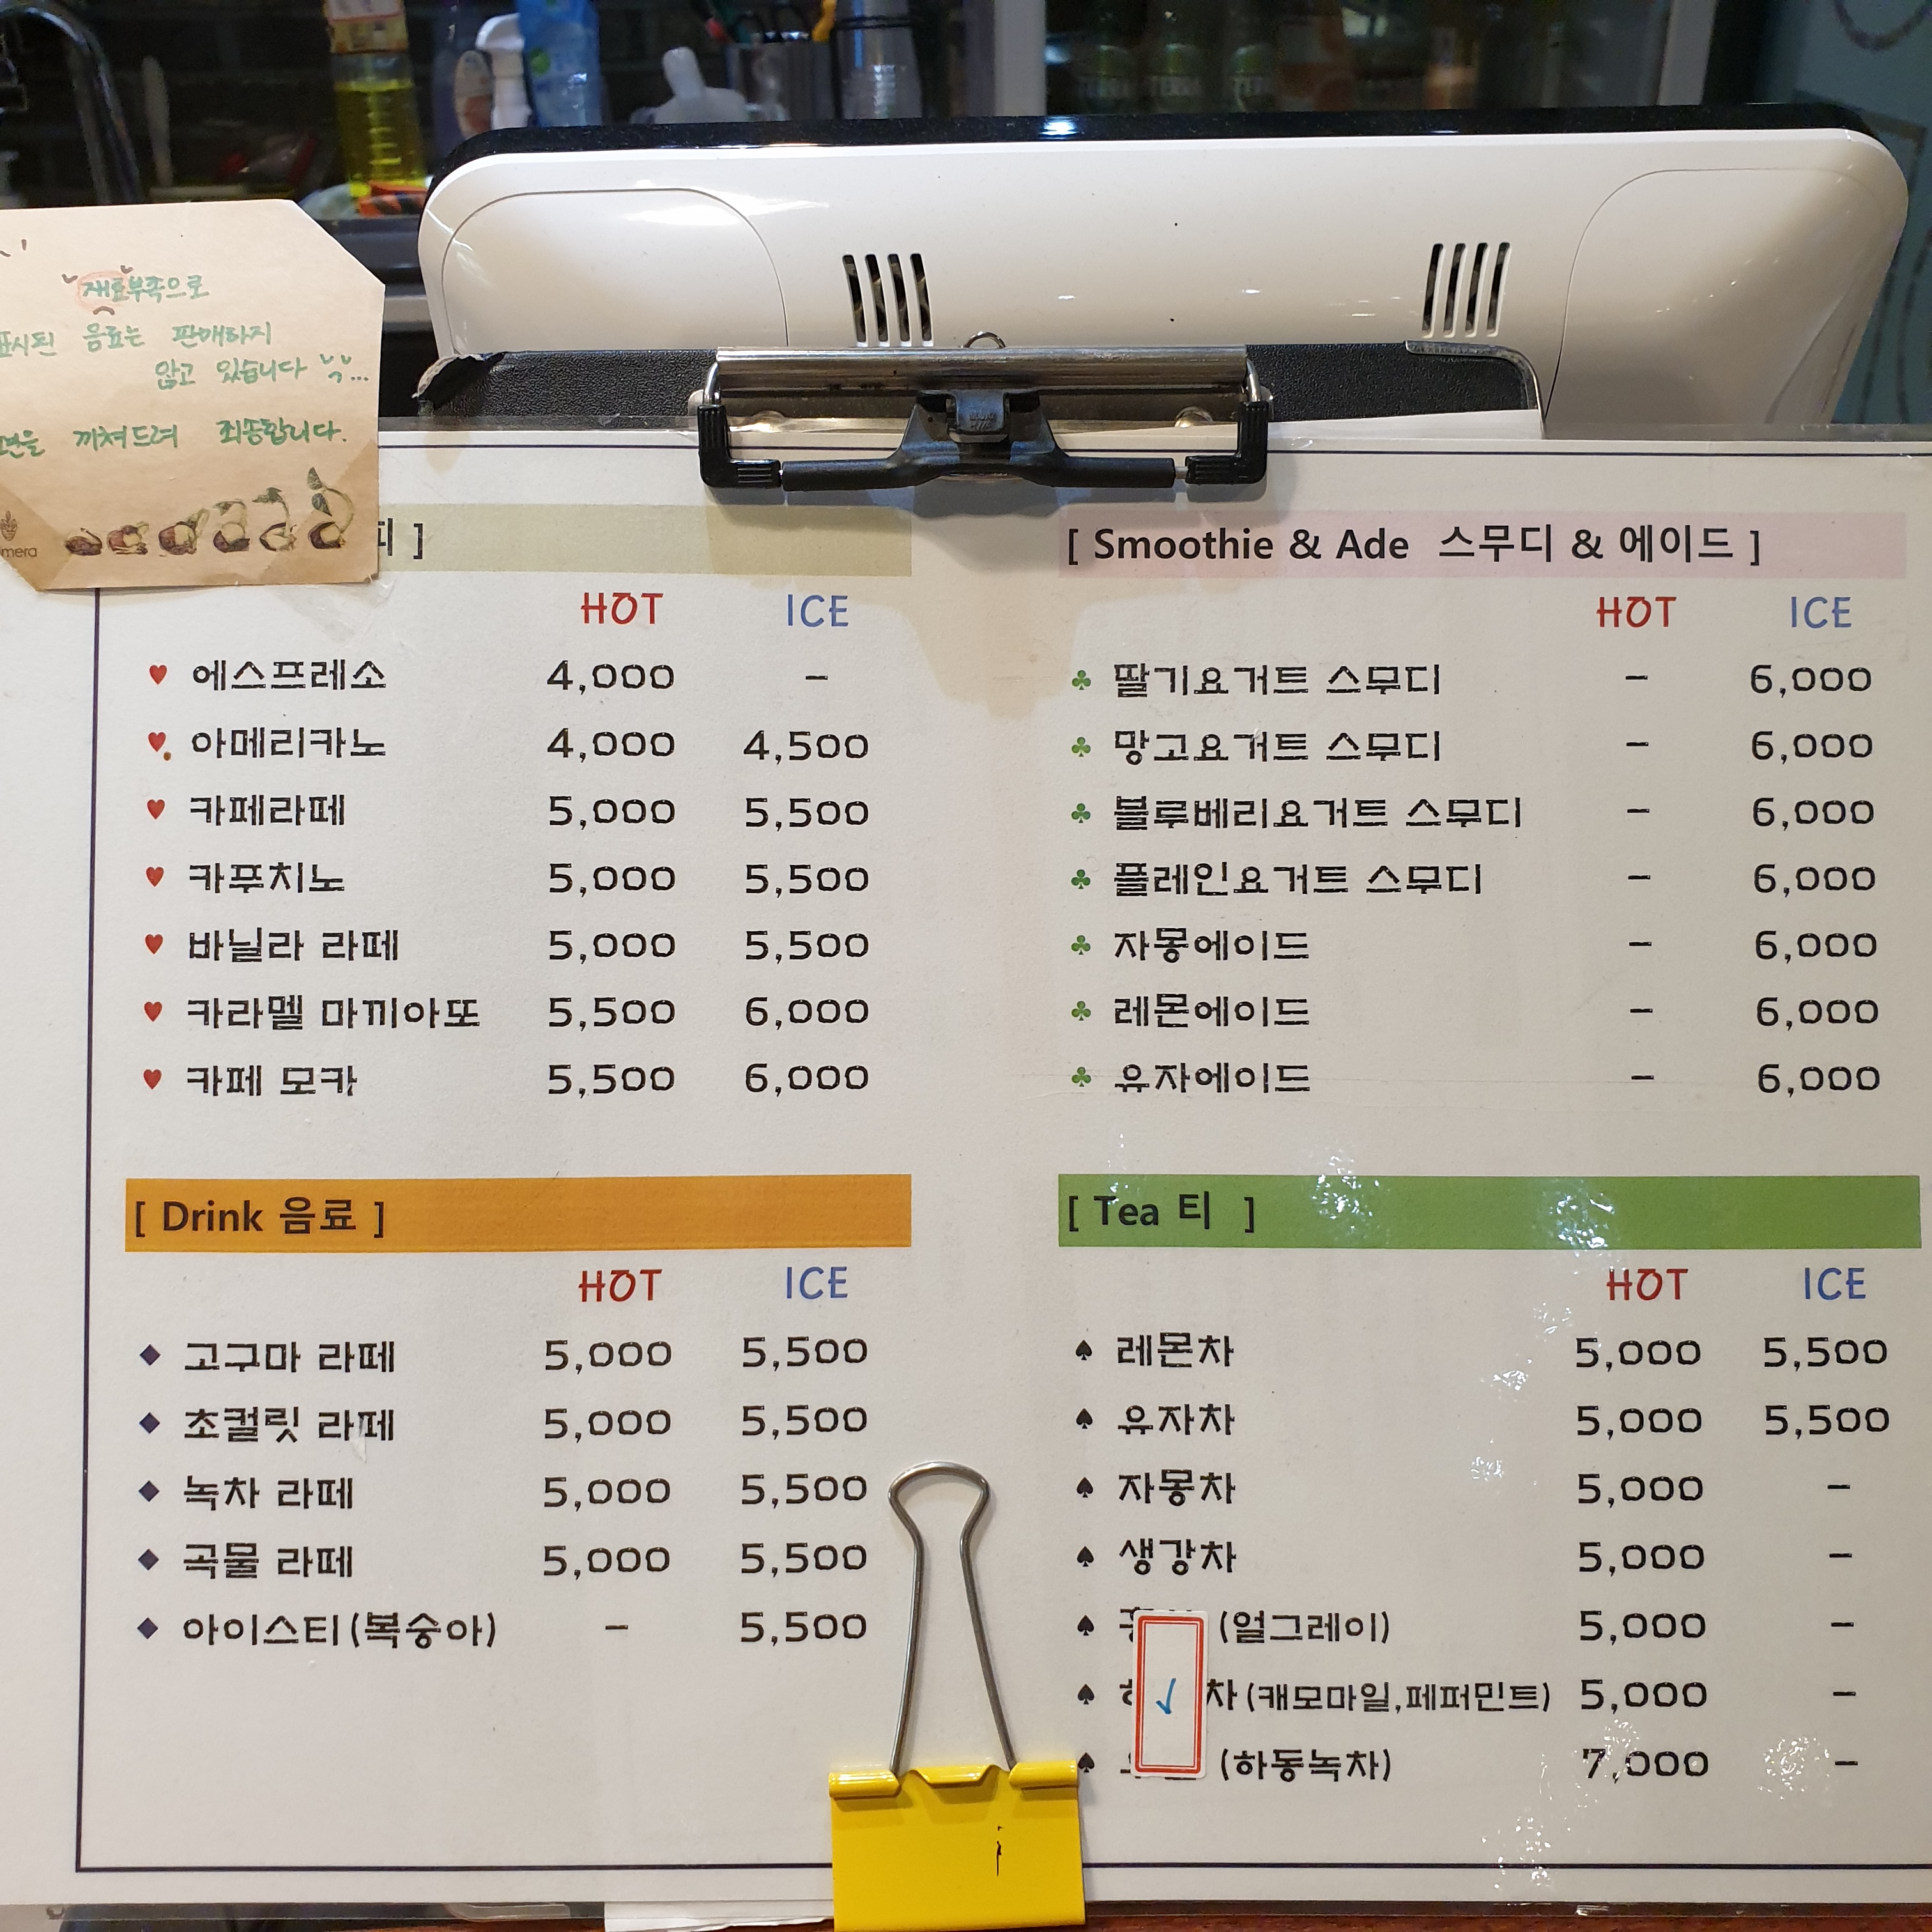 재료부족으로
표시된 음료는 판매하지
않고 있습니다
끼쳐드려 죄송합니다.
mera
피 ]
HOT ICE
에스프레소 4,000 -
아메리카노 4,000 4,500
카페라떼 5,000 5,500
카푸치노 5,000 5,500
바닐라 라떼 5,000 5,500
카라멜 마끼아또 5,500 6,000
카페 모카 5,500 6,000
[ Smoothie & Ade 스무디 & 에이드 ]
HOT ICE
딸기요거트 스무디 - 6,000
망고요거트 스무디 - 6,000
블루베리요거트 스무디 - 6,000
플레인요거트 스무디 - 6,000
자몽에이드 - 6,000
레몬에이드 - 6,000
유자에이드 - 6,000
[ Drink 음료 ]
HOT ICE
고구마 라떼 5,000 5,500
초컬릿 라떼 5,000 5,500
녹차 라떼 5,000 5,500
곡물 라떼 5,000 5,500
아이스티(복숭아) - 5,500
[ Tea 티 ]
HOT ICE
레몬차 5,000 5,500
유자차 5,000 5,500
자몽차 5,000 -
생강차 5,000 -
(얼그레이) 5,000 -
차(캐모마일,페퍼민트) 5,000 -
(하동녹차) 7,000 -